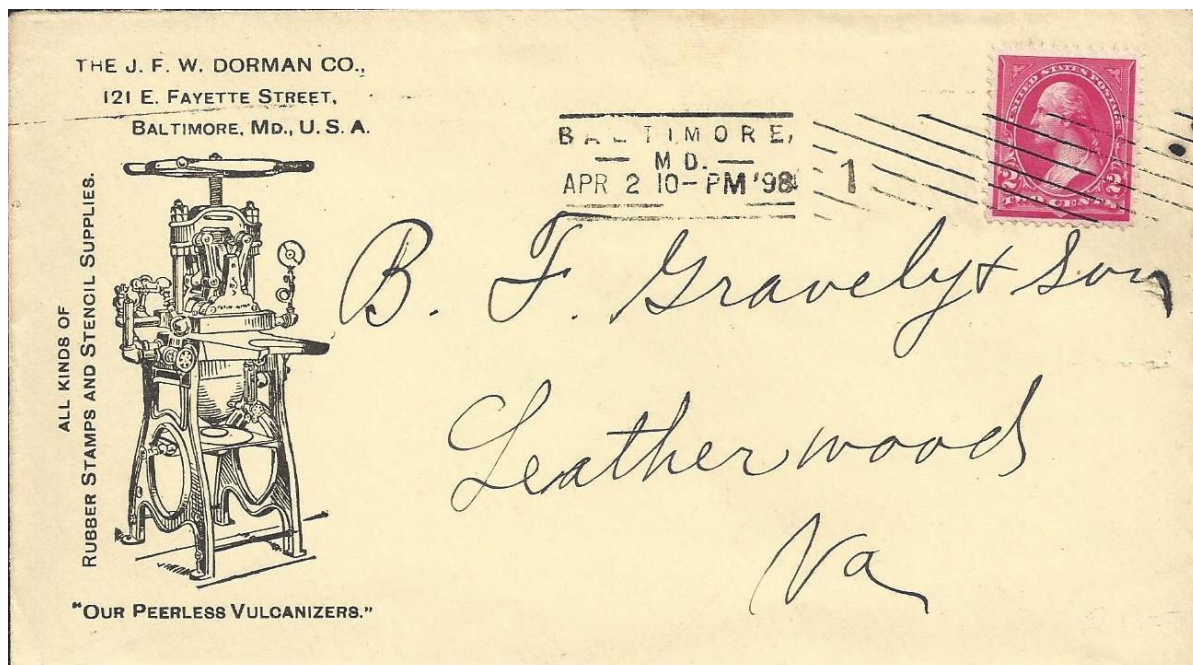 THE J. F. W. DORMAN CO.,
121 E. FAYETTE STREET,
BALTIMORE, MD., U. S. A.
ALL KINDS OF
RUBBER STAMPS AND STENCIL SUPPLIES.
"OUR PEERLESS VULCANIZERS."
BALTIMORE,
— MD. —
APR 2 10-PM '98
1
UNITED STATES POSTAGE
2 2
TWO CENTS
B. F. Gravely & Son
Leatherwood
Va